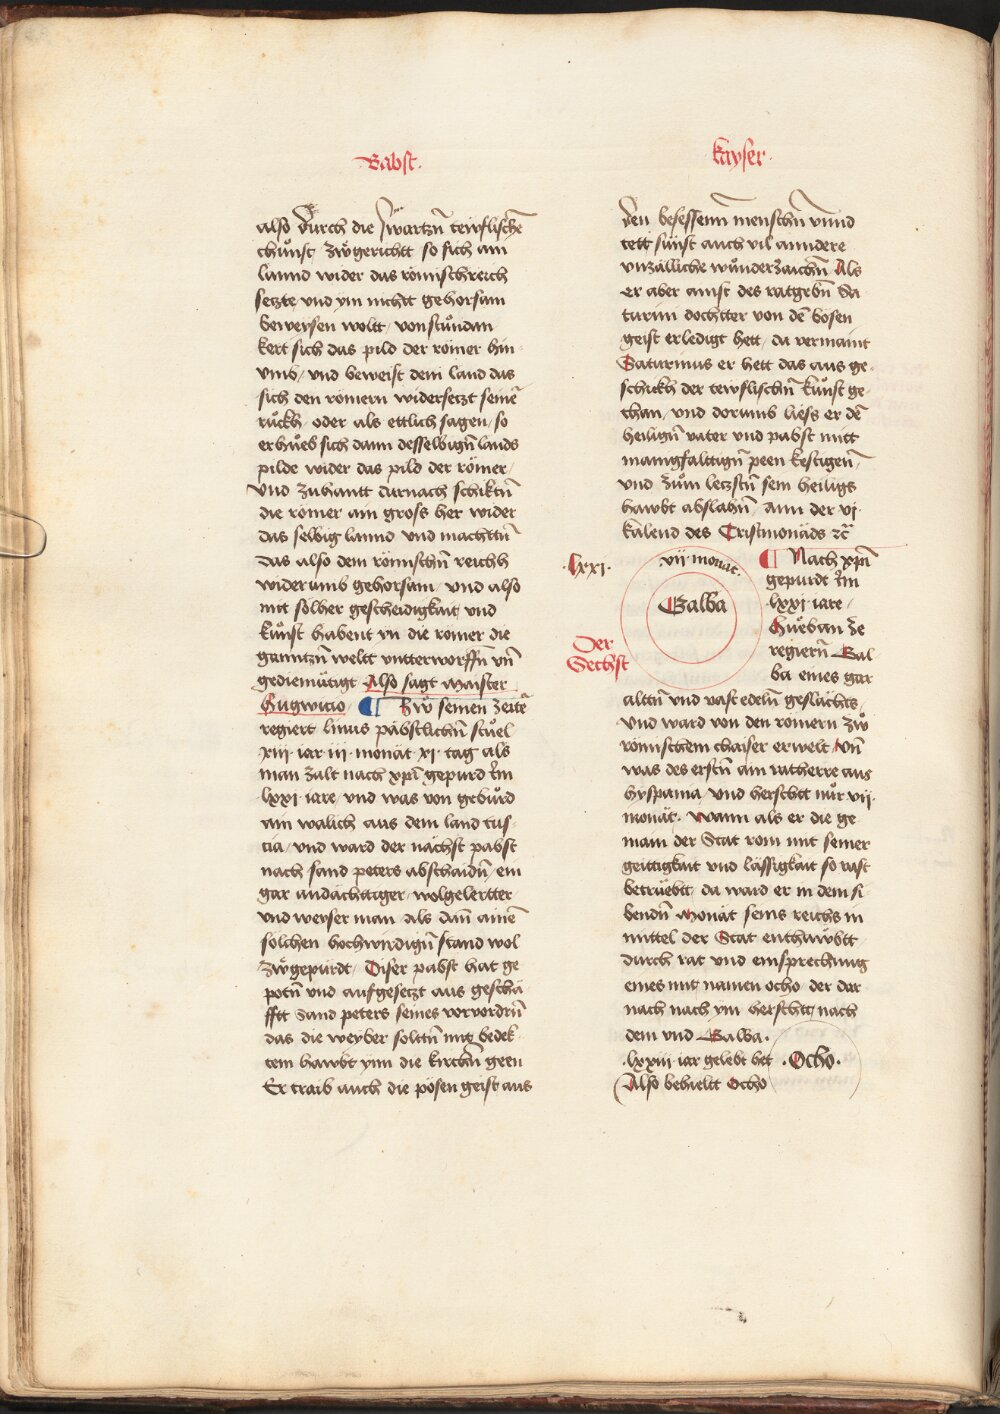 Babst.
also durch die swartzn̄ tewflischē
chünst zwgerichtt so sich ain
lannd wider das römischreich
setzte vnd ym nichtt gehorsam
beweysen woltt, von stůndan
kert sich das pild der römer hin
vmb, vnd beweist dem land das
sich den römern widersetzt seinē
růckh, oder als ettlich sagen, so
erhůeb sich dann desselbign̄ lands
pilde wider das pild der römer,
vnd zuhantt darnach schiktn̄
die römer ain gross her wider
das selbig lannd vnd machttn̄
das also dem römischn̄ reichh
widerumb gehorsam, vnd also
mit sölher gescheidigkait vnd
künst habent vn die römer die
ganntzn̄ weltt vntterworffn̄ vn̄
gediemütigt Also sagt maister
Hugwicio ¶ Zw seinen zeitn̄
regiert linus päbstlichn̄ stůel
xiii iar iii monät xi tag als
man zalt nach xpi gepurd im
lxxi iare, vnd was von gebůrd
ain walich aus dem land tus
cia, vnd ward der nächst pabst
nach sand peters abschaidn̄, ein
gar andächtiger, wolgelertter
vnd weyser man als dan̄ ainē
solchen hochwirdign̄ stand wol
zwgepürdt, Diser pabst hat ge
potn̄ vnd aufgesetzt aus geschä
fftt Sand peters seines vorvordrn̄
das die weyber soltn̄ mit bedek
tem hawbt ynn die kirchn̄ geen
Er traib auch die pösen geist aus
kayser.
den besessenn̄ menschn̄ vnnd
tett sünst auch vil anndere
vnzälliche wůnderzaichn̄ Als
er aber ainst des ratgebn̄ Sa
turini dochtter von dē bosen
geist erledigt hett, da vermaint
Saturinus er hett das aus ge
schickh der tewflischn̄ künst ge
than, vnd dorumb liess er dē
heilign̄ vater vnd pabst mitt
manigfalttign̄ peen kestigen̄,
vnd zům letzstn̄ sein heiligs
hawbt abslahn̄, Ann der vi
kalend des Cristmonäds ꝛc̄
.lxxi.
vii monat.
Galba
Der
Sechst
¶ Nach xpi
gepurdt im
lxxi iare,
Hueban ze
regiern̄ Gal
ba eines gar
alttn̄ vnd vast edeln̄ geslächts,
vnd ward von den römern zw
römischem chaiser erwelt, vn̄
was des erstn̄ ain ratherre aus
hyspania, vnd herschtt nůr vii
monät. Wann als er die ge
main der Stat rom mit seiner
geittigkait vnd lässigkait so vast
betrüebtt, da ward er in dem si
bendn̄ monät seins reichs in
mittel der Stat enthawbtt
durch rat vnd einsprechung
eines mit namen ocho der dar
nach nach ym herschtt, nach
dem vnd Galba.
.lxxiii iar gelebt het
.Ocho.
Also behieltt Ocho